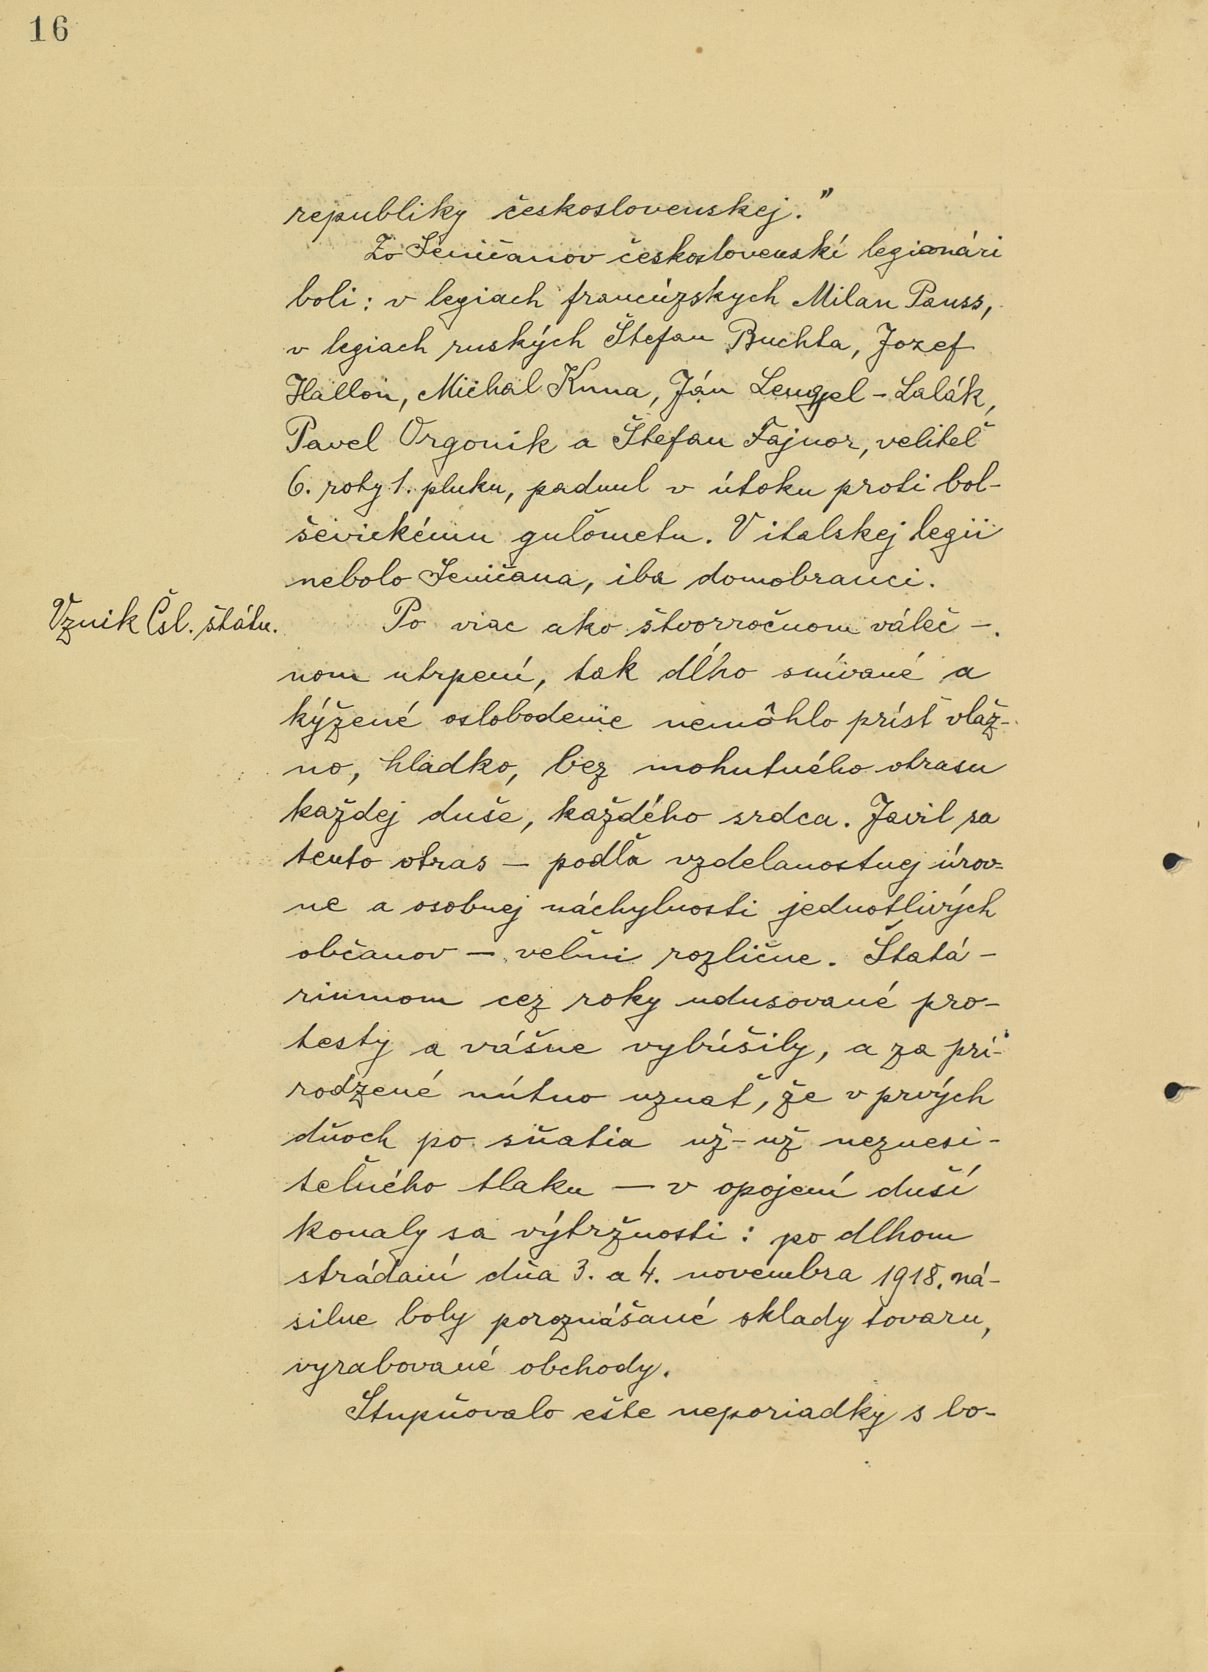 16
republiky československej."
Zo Seničanov československí legionári
boli: v legiach francúzskych Milan Pauss,
v legiach ruských Štefan Buchta, Jozef
Hallon, Michal Knna, Ján Lengyel - Lalák,
Pavel Orgoník a Štefan Fajnor, veliteľ
6. roty 1. pluku, padnul v útoku proti bol-
ševickému guľometu. V italskej legii
nebolo Seničana, iba domobranci.
Vznik Čsl. štátu.
Po viac ako štvorročnom váleč-
nom utrpení, tak dĺho snívané a
kýžené oslobodenie nemôhlo prísť vlaž-
no, hladko, bez mohutného otrasu
každej duše, každého srdca. Javil sa
tento otras - podľa vzdelanostnej úrov-
ne a osobnej náchylnosti jednotlivých
občanov - veľmi rozlične. Štatá-
riumom cez roky udusované pro-
testy a vášne vybúšily, a za pri-
rodzené nútno uznať, že v prvých
dňoch po sňatia už-už neznesi-
teľného tlaku - v opojení duší
konaly sa výtržnosti: po dlhom
strádaní dňa 3. a 4. novembra 1918. ná-
silne boly poroznášané sklady tovaru,
vyrabované obchody.
Stupňovalo ešte neporiadky s bo-